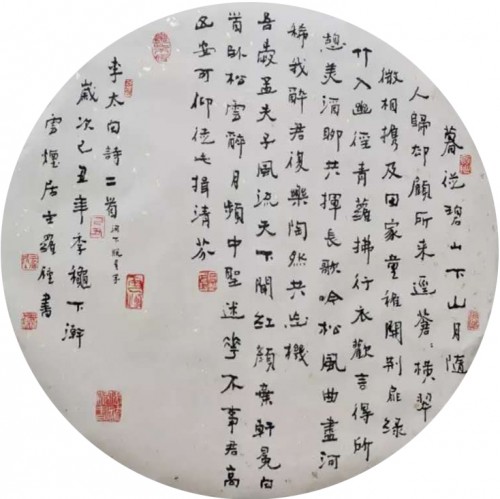 暮從碧山下山月隨
人歸却顧所來逕蒼〻橫翠
微相攜及田家童稚開荆扉綠
竹入幽徑青蘿拂行衣歡言得所
憩美酒聊共揮長歌吟松風曲盡河
稀我醉君復樂陶然共忘機
吾愛孟夫子風流天下聞紅顏棄軒冕白
首卧松雪醉月頻中聖迷花不事君高
山安可仰徒此揖清芬
李太白詩二首
河下脫星字
歲次己丑年季穐下澣
雪煙居士羅書